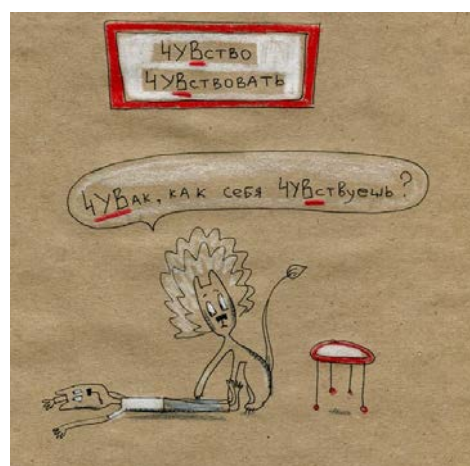 ЧУВСТВО
ЧУВСТВОВАТЬ
ЧУВАК, КАК СЕБЯ ЧУВСТВУЕШЬ?